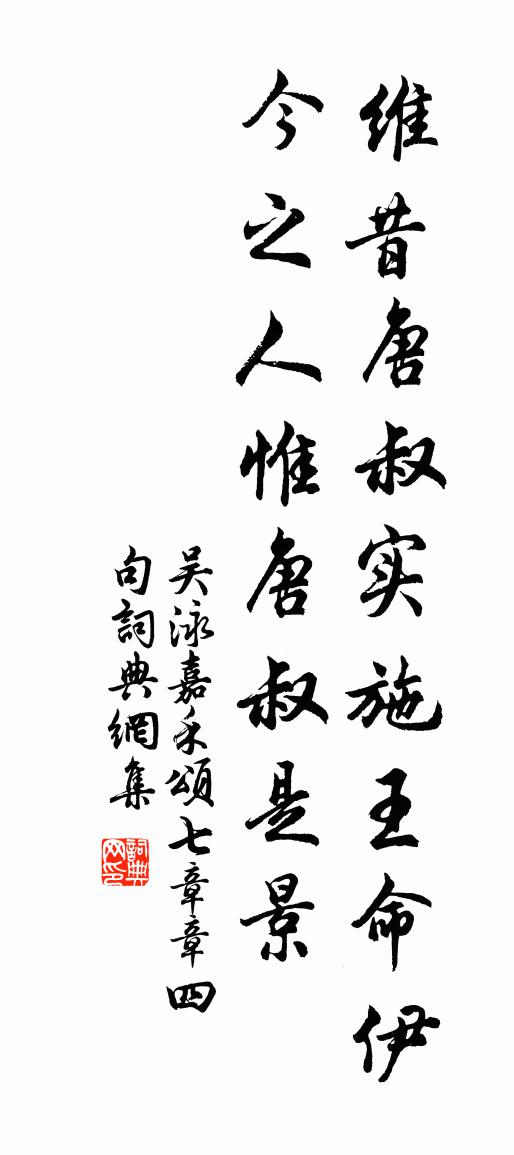 维昔唐叔实施王命伊
今之人惟唐叔是景
吴泳嘉禾頌七章章四
句詞典網集
詞典网印